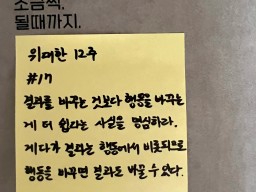 조금씩.
될때까지.
위대한 12주
#17
결과를 바꾸는 것보다 행동을 바꾸는
게 더 쉽다는 사실을 명심하라.
게다가 결과는 행동에서 비롯되므로
행동을 바꾸면 결과도 바꿀 수 있다.